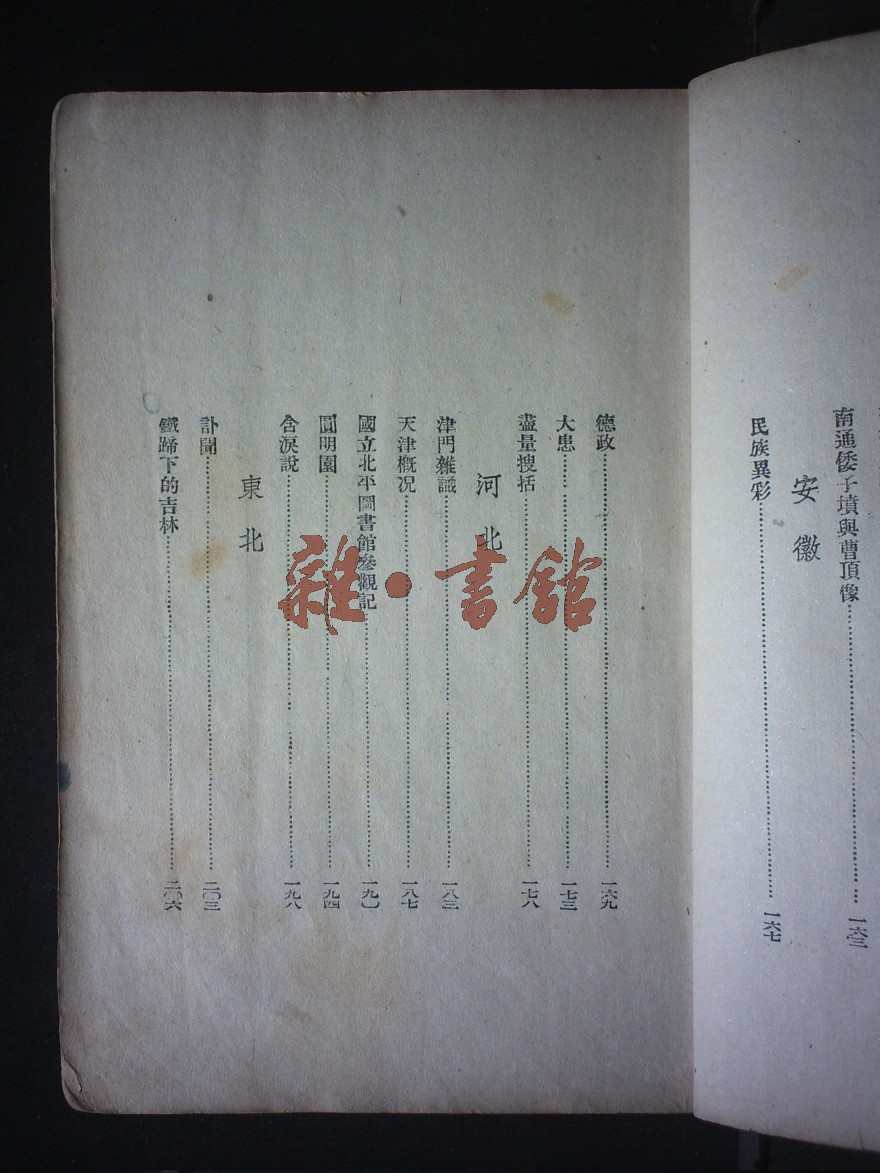 南通倭子墳與曹頂像⋯⋯一六三
安徽
民族異彩⋯⋯一六七
德政⋯⋯一六九
大患⋯⋯一七三
盡量搜括⋯⋯一七八
河北
津門雜識⋯⋯一八三
天津概況⋯⋯一八七
國立北平圖書館參觀記⋯⋯一九〇
圓明園⋯⋯一九四
含淚說⋯⋯一九八
東北
訃聞⋯⋯二〇三
鐵蹄下的吉林⋯⋯二〇六
雜·書館